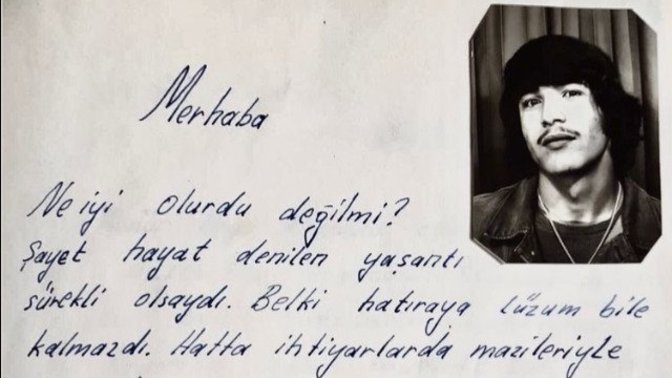 Merhaba
Ne iyi olurdu değilmi?
Şayet hayat denilen yaşantı
sürekli olsaydı. Belki hatıraya lüzum bile
kalmazdı. Hatta ihtiyarlarda mazileriyle